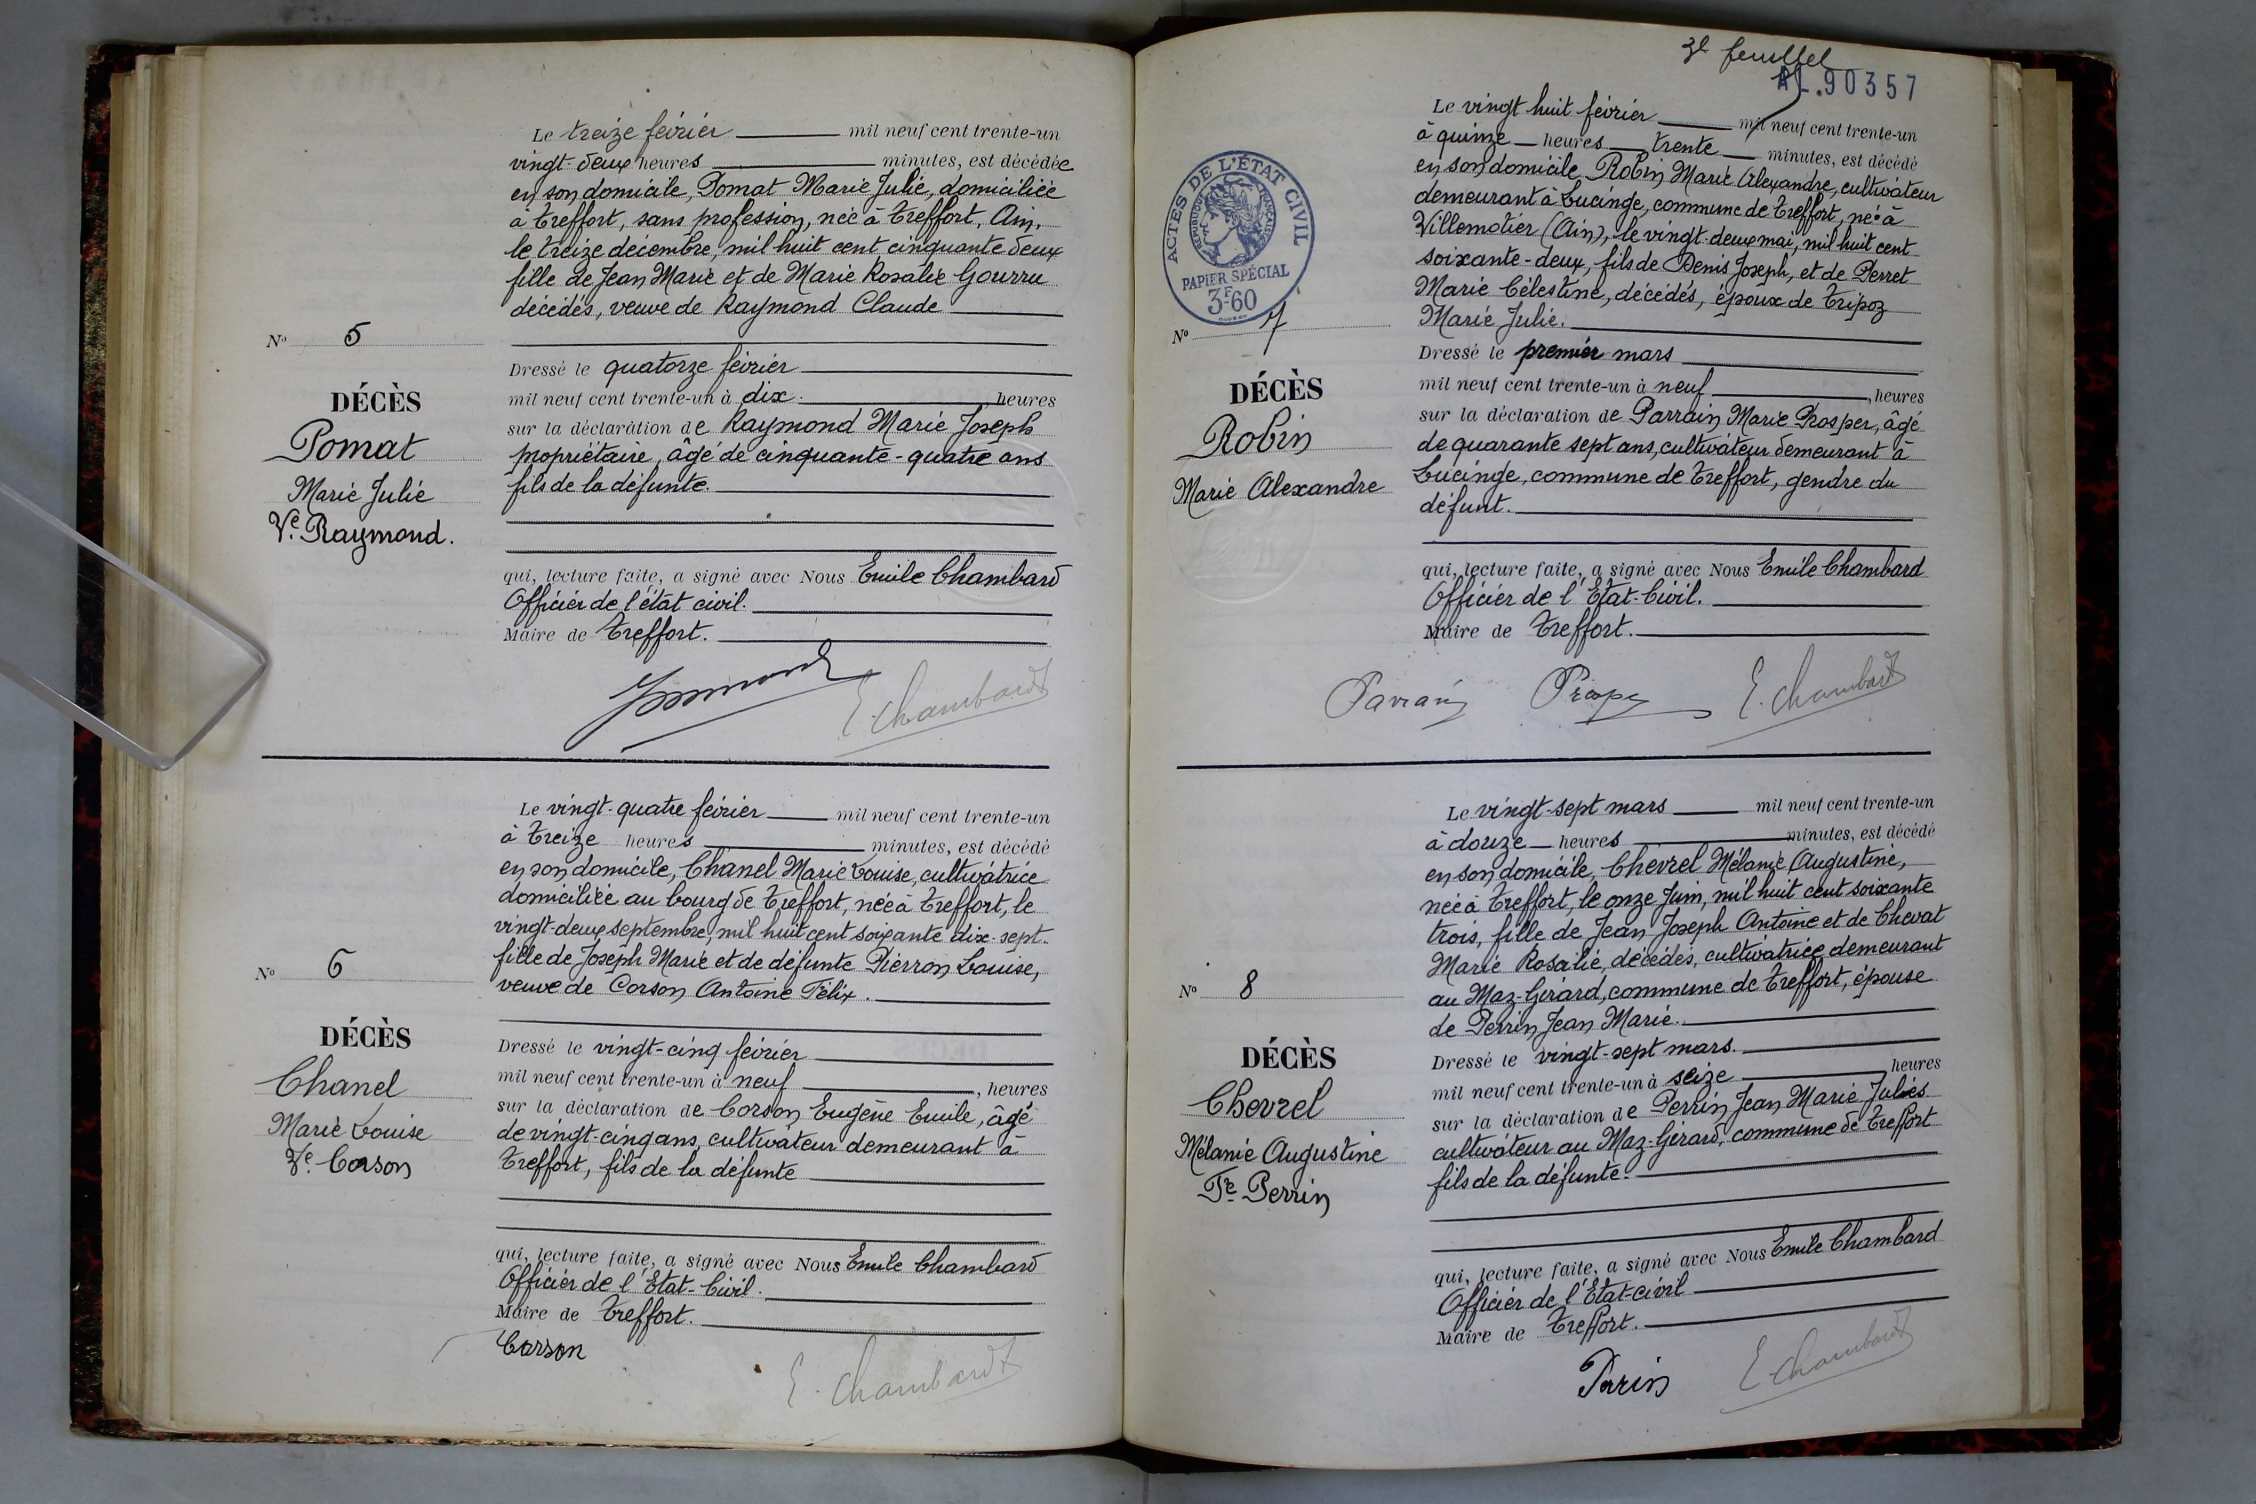 Le treize février mil neuf cent trente-un
vingt-deux heures minutes, est décédée
en son domicile, Pomat Marie Julie, domiciliée
à Treffort, sans profession, née à Treffort, Ain,
le treize décembre, mil huit cent cinquante deux
fille de Jean Marie et de Marie Rosalie Gourru
décédés, veuve de Raymond Claude
N° 5
Dressé le quatorze février
mil neuf cent trente-un à dix. heures
sur la déclaration de Raymond Marie Joseph
propriétaire, âgé de cinquante-quatre ans
fils de la défunte.
DÉCÈS
Pomat
Marie Julie
Ve. Raymond.
qui, lecture faite, a signé avec Nous Emile Chambard
Officier de l'état civil.
Maire de Treffort.
E. Chambard
Le vingt-quatre février mil neuf cent trente-un
à treize heures minutes, est décédé
en son domicile, Chanel Marie Louise, cultivatrice
domiciliée au bourg de Treffort, née à Treffort, le
vingt-deux septembre, mil huit cent soixante dix-sept.
fille de Joseph Marie et de défunte Pierron Louise,
veuve de Corson Antoine Félix.
N° 6
DÉCÈS
Chanel
Marie Louise
Ve. Corson
Dressé le vingt-cinq février
mil neuf cent trente-un à neuf, heures
sur la déclaration de Corson Eugène Emile, âgé
de vingt-cinq ans, cultivateur demeurant à
Treffort, fils de la défunte
qui, lecture faite, a signé avec Nous Emile Chambard
Officier de l'Etat-Civil.
Maire de Treffort.
Corson
E. Chambard
3e feuillet
AL.90357
ACTES DE L'ÉTAT CIVIL
RÉPUBLIQUE FRANÇAISE
PAPIER SPÉCIAL
3F-60
Le vingt huit février mil neuf cent trente-un
à quinze heures trente minutes, est décédé
en son domicile Robin Marie Alexandre, cultivateur
demeurant à Lucinge, commune de Treffort, né à
Villemotier (Ain), le vingt-deux mai, mil huit cent
soixante-deux, fils de Denis Joseph, et de Perret
Marie Célestine, décédés, époux de Tripoz
Marie Julie.
N° 7
DÉCÈS
Robin
Marie Alexandre
Dressé le premier mars
mil neuf cent trente-un à neuf, heures
sur la déclaration de Parrain Marie Prosper, âgé
de quarante sept ans, cultivateur demeurant à
Lucinge, commune de Treffort, gendre du
défunt.
qui, lecture faite, a signé avec Nous Emile Chambard
Officier de l'Etat-Civil.
Maire de Treffort.
E. Chambard
Le vingt-sept mars mil neuf cent trente-un
à douze heures minutes, est décédé
en son domicile, Chevrel Mélanie Augustine,
née à Treffort, le onze Juin, mil huit cent soixante
trois, fille de Jean Joseph Antoine et de Chevat
Marie Rosalie, décédés, cultivatrice demeurant
au Maz-Gérard, commune de Treffort, épouse
de Perrin Jean Marie.
N° 8
DÉCÈS
Chevrel
Mélanie Augustine
Fe Perrin
Dressé le vingt-sept mars.
mil neuf cent trente-un à seize heures
sur la déclaration de Perrin Jean Marie Julies
cultivateur au Maz-Gérard, commune de Treffort
fils de la défunte.
qui, lecture faite, a signé avec Nous Emile Chambard
Officier de l'Etat-civil
Maire de Treffort.
Perrin
E. Chambard